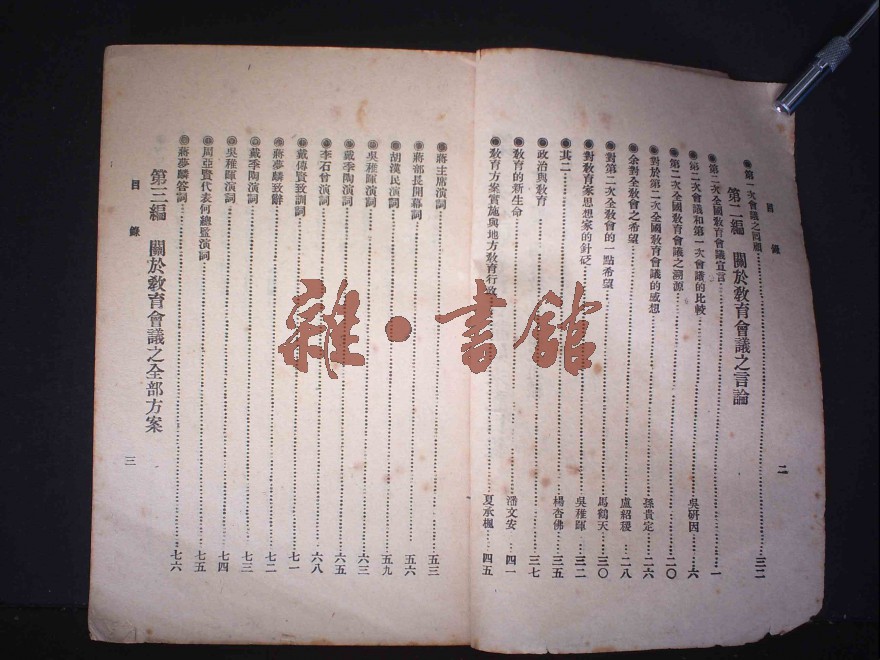 目錄
二
第一次會議之回顧……三二
第二編 關於教育會議之言論
第二次全國教育會議宣言……一
第二次會議和第一次會議的比較……吳研因……六
第二次全國教育會議之溯源……二〇
對於第二次全國教育會議的感想……孫貴定……二六
余對全教會之希望……盧紹稷……二八
對第二次全教會的一點希望……馬鶴天……三〇
對教育家思想家的針砭……吳稚暉……三二
其二……楊杏佛……三五
政治與教育……三七
教育的新生命……潘文安……四一
教育方案實施與地方教育行政……夏承楓……四五
蔣主席演詞……五三
蔣部長開幕詞……五六
胡漢民演詞……五九
吳稚暉演詞……六三
戴季陶演詞……六五
李石曾演詞……六八
戴傳賢致訓詞……七一
蔣夢麟致辭……七二
戴季陶演詞……七三
吳稚暉演詞……七四
周亞賢代表何總監演詞……七五
蔣夢麟答詞……七六
第三編 關於教育會議之全部方案
目錄
三
雜·書館